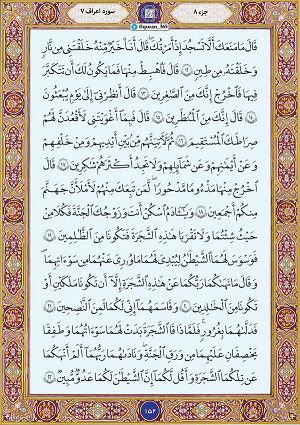 جزء ۸
@quran_365
سوره اعراف ۷
قَالَ مَا مَنَعَكَ أَلَّا تَسْجُدَ إِذْ أَمَرْتُكَ قَالَ أَنَا۠ خَيْرٌ مِّنْهُ خَلَقْتَنِي مِن نَّارٍ
وَخَلَقْتَهُۥ مِن طِينٍ ﴿١٢﴾ قَالَ فَٱهْبِطْ مِنْهَا فَمَا يَكُونُ لَكَ أَن تَتَكَبَّرَ
فِيهَا فَٱخْرُجْ إِنَّكَ مِنَ ٱلصَّٰغِرِينَ ﴿١٣﴾ قَالَ أَنظِرْنِىٓ إِلَىٰ يَوْمِ يُبْعَثُونَ
﴿١٤﴾ قَالَ إِنَّكَ مِنَ ٱلْمُنظَرِينَ ﴿١٥﴾ قَالَ فَبِمَآ أَغْوَيْتَنِى لَأَقْعُدَنَّ لَهُمْ
صِرَٰطَكَ ٱلْمُسْتَقِيمَ ﴿١٦﴾ ثُمَّ لَـَٔاتِيَنَّهُم مِّنۢ بَيْنِ أَيْدِيهِمْ وَمِنْ خَلْفِهِمْ
وَعَنْ أَيْمَٰنِهِمْ وَعَن شَمَآئِلِهِمْ وَلَا تَجِدُ أَكْثَرَهُمْ شَٰكِرِينَ ﴿١٧﴾ قَالَ
ٱخْرُجْ مِنْهَا مَذْءُومًا مَّدْحُورًا لَّمَن تَبِعَكَ مِنْهُمْ لَأَمْلَأَنَّ جَهَنَّمَ
مِنكُمْ أَجْمَعِينَ ﴿١٨﴾ وَيَٰٓـَٔادَمُ ٱسْكُنْ أَنتَ وَزَوْجُكَ ٱلْجَنَّةَ فَكُلَا مِنْ
حَيْثُ شِئْتُمَا وَلَا تَقْرَبَا هَٰذِهِ ٱلشَّجَرَةَ فَتَكُونَا مِنَ ٱلظَّٰلِمِينَ ﴿١٩﴾
فَوَسْوَسَ لَهُمَا ٱلشَّيْطَٰنُ لِيُبْدِىَ لَهُمَا مَا وُۥرِىَ عَنْهُمَا مِن سَوْءَٰتِهِمَا
وَقَالَ مَا نَهَىٰكُمَا رَبُّكُمَا عَنْ هَٰذِهِ ٱلشَّجَرَةِ إِلَّآ أَن تَكُونَا مَلَكَيْنِ أَوْ
تَكُونَا مِنَ ٱلْخَٰلِدِينَ ﴿٢٠﴾ وَقَاسَمَهُمَآ إِنِّى لَكُمَا لَمِنَ ٱلنَّٰصِحِينَ ﴿٢١﴾
فَدَلَّىٰهُمَا بِغُرُورٍ فَلَمَّا ذَاقَا ٱلشَّجَرَةَ بَدَتْ لَهُمَا سَوْءَٰتُهُمَا وَطَفِقَا
يَخْصِفَانِ عَلَيْهِمَا مِن وَرَقِ ٱلْجَنَّةِ وَنَادَىٰهُمَا رَبُّهُمَآ أَلَمْ أَنْهَكُمَا
عَن تِلْكُمَا ٱلشَّجَرَةِ وَأَقُل لَّكُمَآ إِنَّ ٱلشَّيْطَٰنَ لَكُمَا عَدُوٌّ مُّبِينٌ ﴿٢٢﴾
۱۵۲